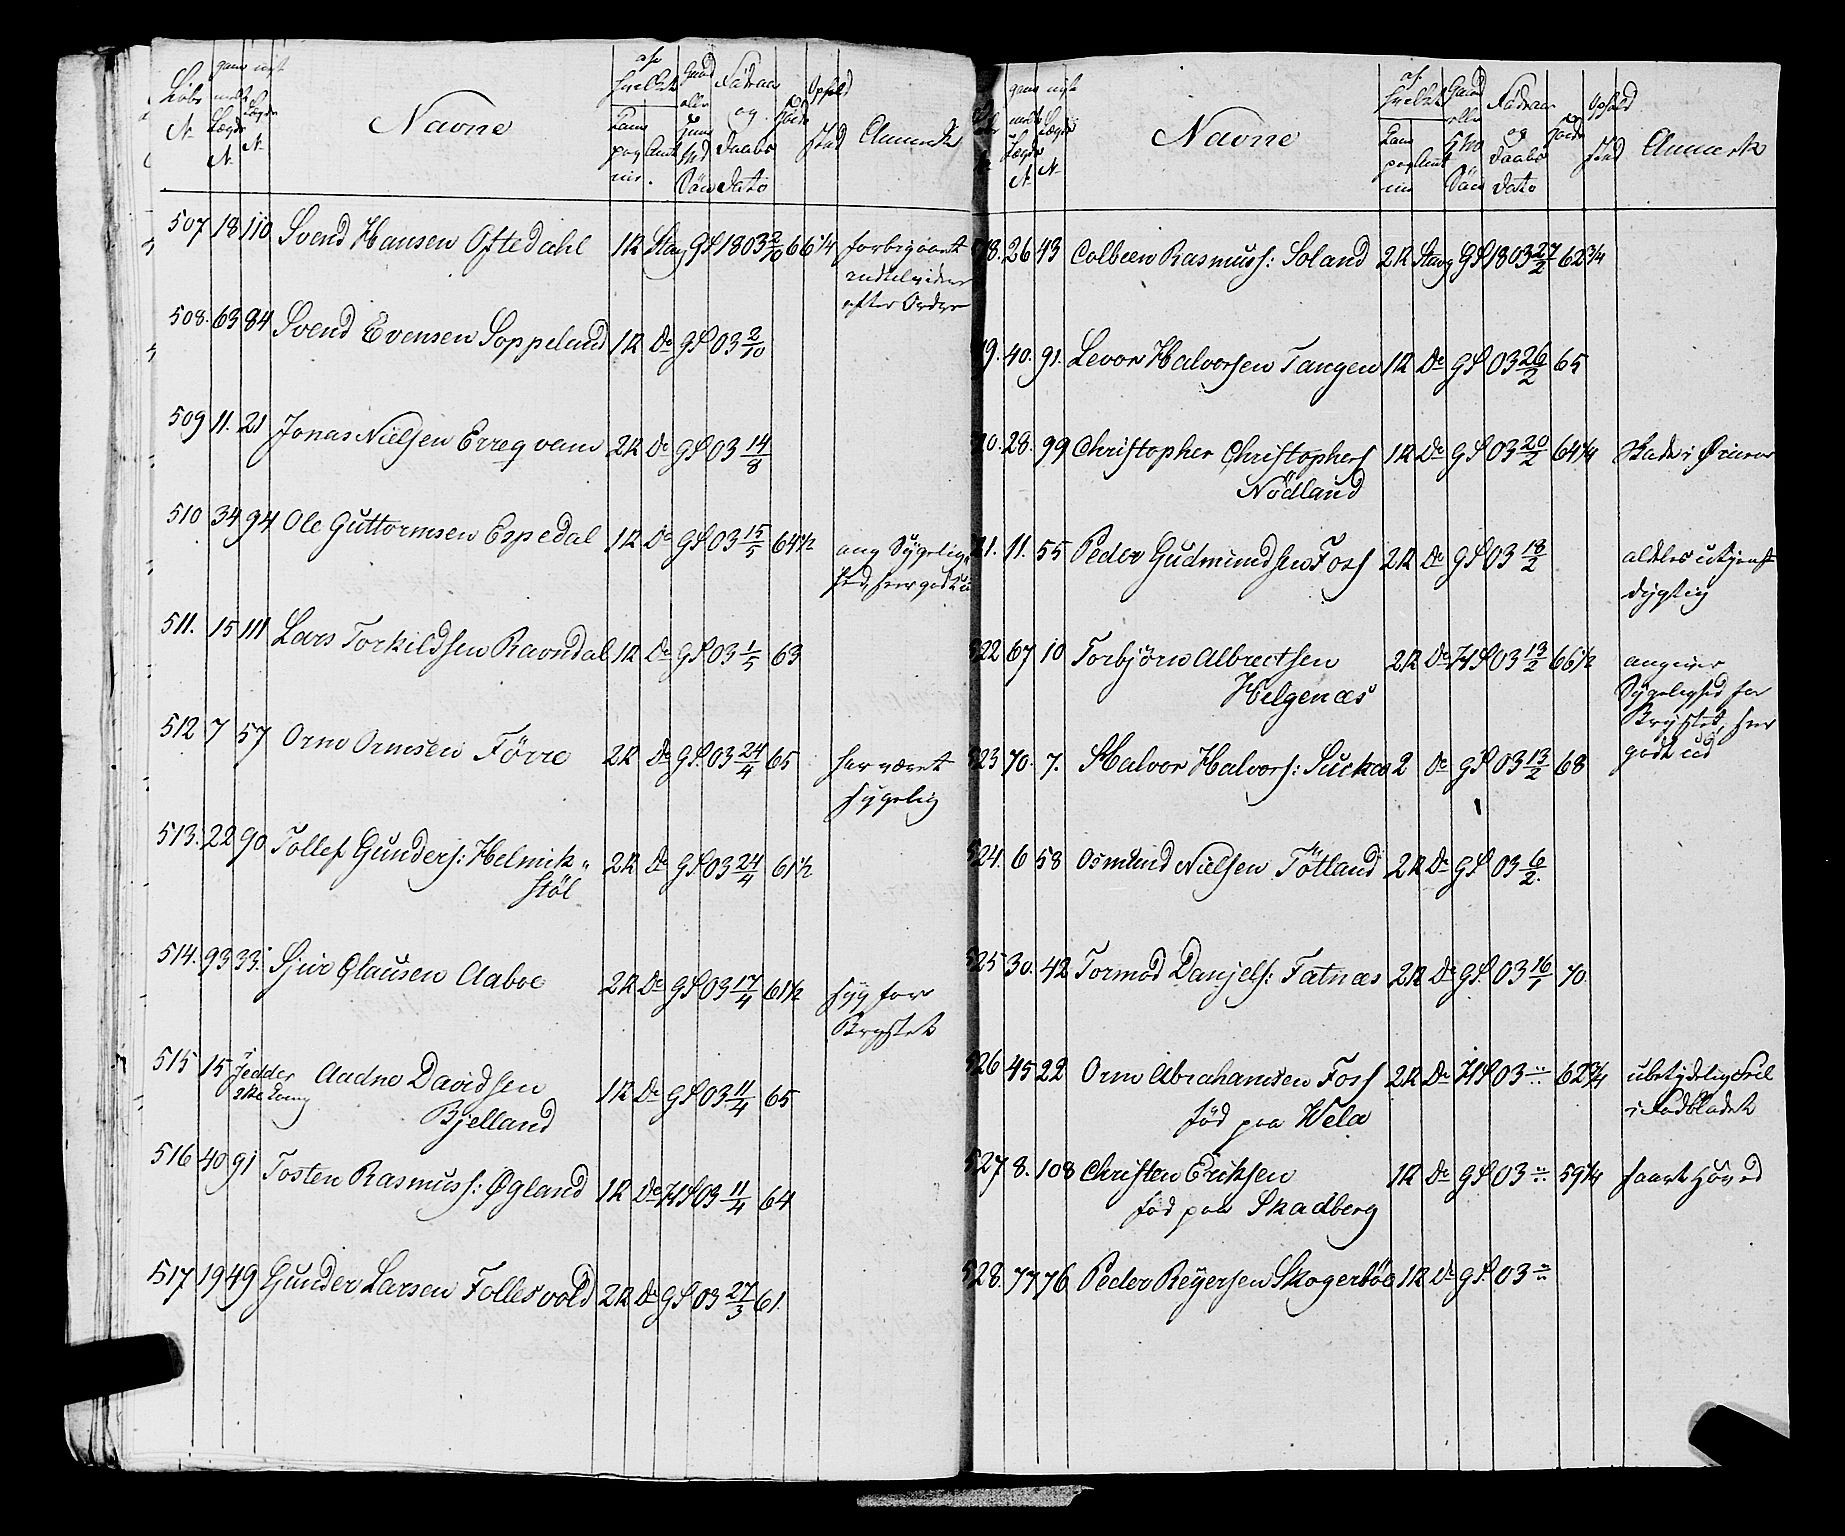 Løbe N. gammelt Lægds N. nyt Lægds N. Navne af hvilket Kompagnie Amt Gaard eller Huusmands Søn Födsaar og Daabs dato Høide Ophold sted Anmerk
507 18 110 Svend Hansen Oftedahl 1 K Stav GS 1803 2/10 66 1/4 forbigaaet
indtil videre
efter Ordre
508. 63 84 Svend Evensen Soppeland 1 K Do GS 03 2/10
509 11. 21 Jonas Nielsen Erreqvam 2 K Do GS 03 14/8
510 34 94 Ole Guttormsen Espedal 1 K Do GS 03 15/5 64 1/2 ang Sygelig-
hed, seer godt ud
511. 15 111 Lars Torkildsen Ravndal 1 K Do GS 03 1/5 63
512 7 57 Orm Ormsen Förre 2 K Do GS 03 24/4 65 har været
sygelig
513. 22 90 Tollef Gunders: Helmik-
stöl 2 K Do GS 03 24/4 61 1/2
514. 93 33. Sjur Olausen Aaboe 2 K Do GS 03 17/4 61 1/2 syg for
Brystet
515 15 Aadne Davidsen
Bjelland 1 K Do GS 03 11/4 65
516 40 91 Tosten Rasmuss: Øgland 1 K Do HS 03 11/4 64
517 19 49 Gunder Larsen Follesvold 2 K Do GS 03 27/3 61.
Navne af hvilket Kompagnie Amt Gaard eller Huus Søn Födsaar og Daabs dato Høide Ophold sted Anmerk
18. 26 43 Colbeen Rasmuss: Soland 2 K Stavg GS 1803 27/2 62 3/4
19. 40. 91. Levor Halvorsen Tangen 1 K Do GS 03 26/2 65
20. 28. 99 Christopher Christophers
Nödland 1 K Do GS 03 20/2 64 1/4 Skade i Ørinene
21. 11. 55 Peder Gudmundsen Foss 2 K Do GS 03 18/2 aldeles utjenst
dygtig
522 67 10 Torbjörn Albrectsen
Helgenæs 2 K Do HS 03 13/2 66 1/2 angiver
Sygelighed for
Brystet, seer
godt ud
523 70. 7. Halvor Halvors: Suckas 2 Do GS 03 13/2 68
524. 6 58 Osmund Nielsen Tötland 2 K Do GS 03 6/2.
525 30. 42 Tormod Danjels: Fatnæs 2 K Do GS. 03 16/1 70.
526 45 22 Orm Abrahamsen Foss
föd paa Wela 2 K Do HS 03 " 62 3/4 ubetydelig Feil
i Fodbladet
527 8. 108 Christen Eriksen
föd paa Skadberg 1 K Do GS 03 " 59 1/4 saart Hoved
528. 77 76 Peder Reyersen Skogerböe 1 K Do GS. 03 "